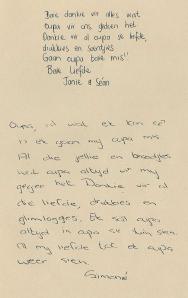 Baie dankie vir alles wat
oupa vir ons gedoen het
Dankie vir al oupa se liefde,
drukkies en soentjies
Gaan oupa baie mis!!
Baie Liefde
Janie & Séan
Oupa, al wat ek kan sê
is ek gaan my oupa mis.
Al die jellie en broodjies
wat oupa altyd vir my
gegee het. Dankie vir al
die liefde, drukkies en
glimlagges. Ek sal oupa
altyd in oupa se tuin sien.
Al my liefde tot ek oupa
weer sien.
Simoné